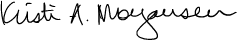 Kristi A. Morgansen